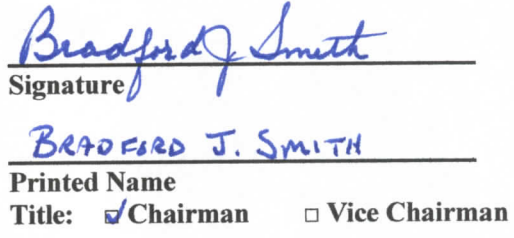 Bradford J Smith
Signature
BRADFORD J. SMITH
Printed Name
Title: ☑ Chairman □ Vice Chairman